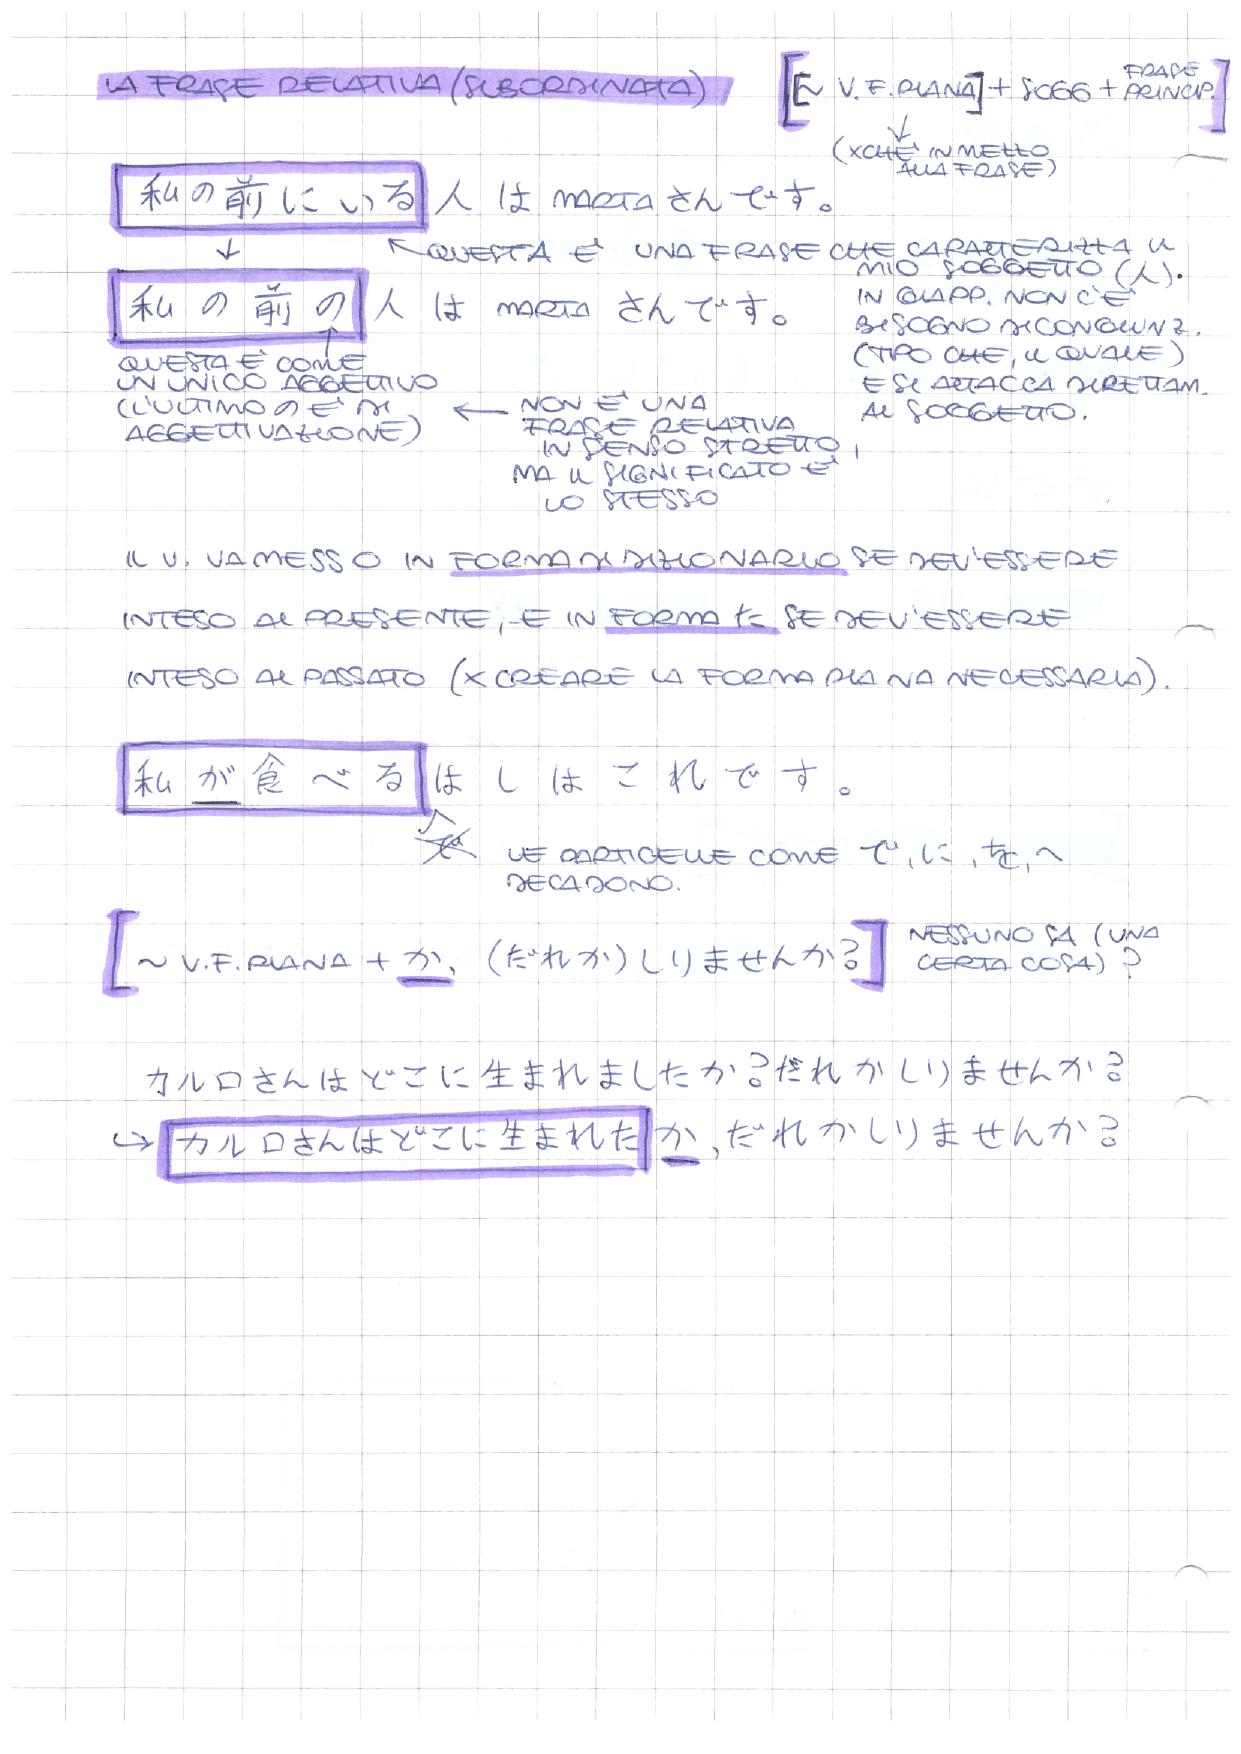 LA FRASE RELATIVA (SUBORDINATA)
[[~ V. F. PIANA] + SOGG + FRASE PRINCIP.]
↓
(XCHÈ IN MEZZO
ALLA FRASE)
私の前にいる人は MARTA さんです。
↓
← QUESTA È UNA FRASE CHE CARATTERIZZA IL
MIO SOGGETTO (人).
IN GIAPP. NON C'È
BISOGNO DI CONGIUNZ.
(TIPO CHE, IL QUALE)
E SI ATTACCA DIRETTAM.
AL SOGGETTO.
私の前の人は MARTA さんです。
QUESTA È COME
UN UNICO AGGETTIVO
(L'ULTIMO の È DI
AGGETTIVAZIONE)
← NON È UNA
FRASE RELATIVA
IN SENSO STRETTO,
MA IL SIGNIFICATO È
LO STESSO
IL V. VA MESSO IN FORMA DI DIZIONARIO SE DEV'ESSERE
INTESO AL PRESENTE, E IN FORMA た SE DEV'ESSERE
INTESO AL PASSATO (X CREARE LA FORMA PIANA NECESSARIA).
私が食べるはしはこれです。
で LE PARTICELLE COME で, に, を, へ
DECADONO.
[~ V. F. PIANA + か, (だれか)しりませんか?] NESSUNO SA (UNA
CERTA COSA)?
カルロさんはどこに生まれましたか?だれかしりませんか?
↪ カルロさんはどこに生まれたか,だれかしりませんか?